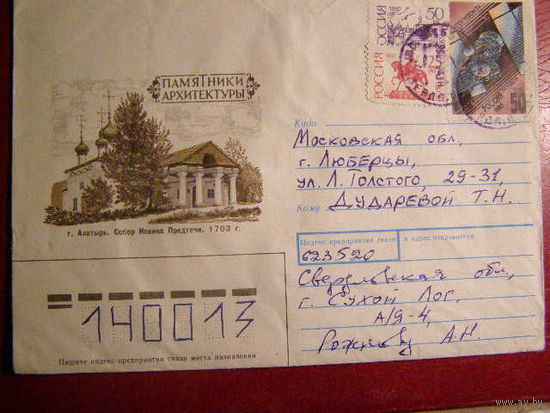 ПАМЯТНИКИ
АРХИТЕКТУРЫ
г. Алатырь. Собор Иоанна Предтечи. 1703 г.
РОССИЯ 50
РОССИЯ 25
50
Куда Московская обл.,
г. Люберцы,
ул. Л. Толстого, 29-31,
Кому Дударевой Т. Н.
Индекс предприятия связи и адрес отправителя
623520
Свердловская обл.,
г. Сухой Лог,
а/я-4,
А.Н.
140013
Пишите индекс предприятия связи места назначения
www.ay.by